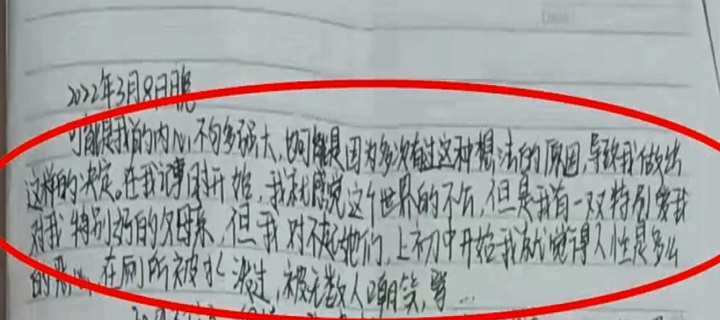 2022年3月8日晚
可能是我的内心不够强大,也可能是因为多次有过这种想法的原因,导致我做出
这样的决定。在我记事时开始,我就感觉这个世界的不公,但是我有一双特别爱我
对我特别好的父母亲,但我对不起她们,上初中开始我就觉得人性是多么
的恶心,在厕所被水泼过,被无数人嘲笑,骂…